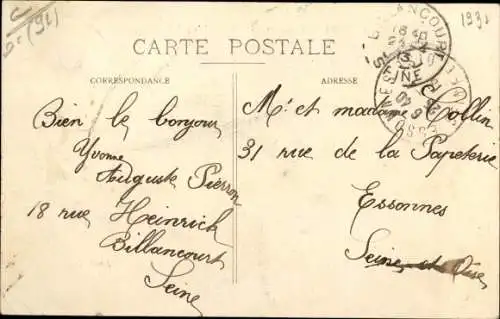 1991
(91)
CARTE POSTALE
CORRESPONDANCE
ADRESSE
BILLANCOURT
SEINE
Bien le bonjour
Yvonne
Auguste Pierron
18 rue Heinrich
Billancourt
Seine
Mr et madame Collin
31 rue de la Papeterie
Essonnes
Seine et Oise